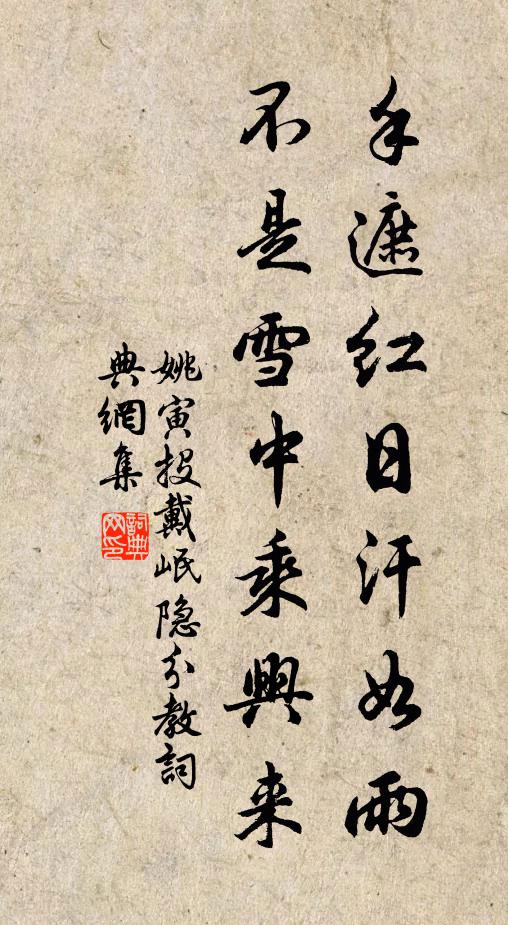 手遮红日汗如雨
不是雪中乘興来
姚寅投戴岷隐分教詞
典網集
詞典
网印